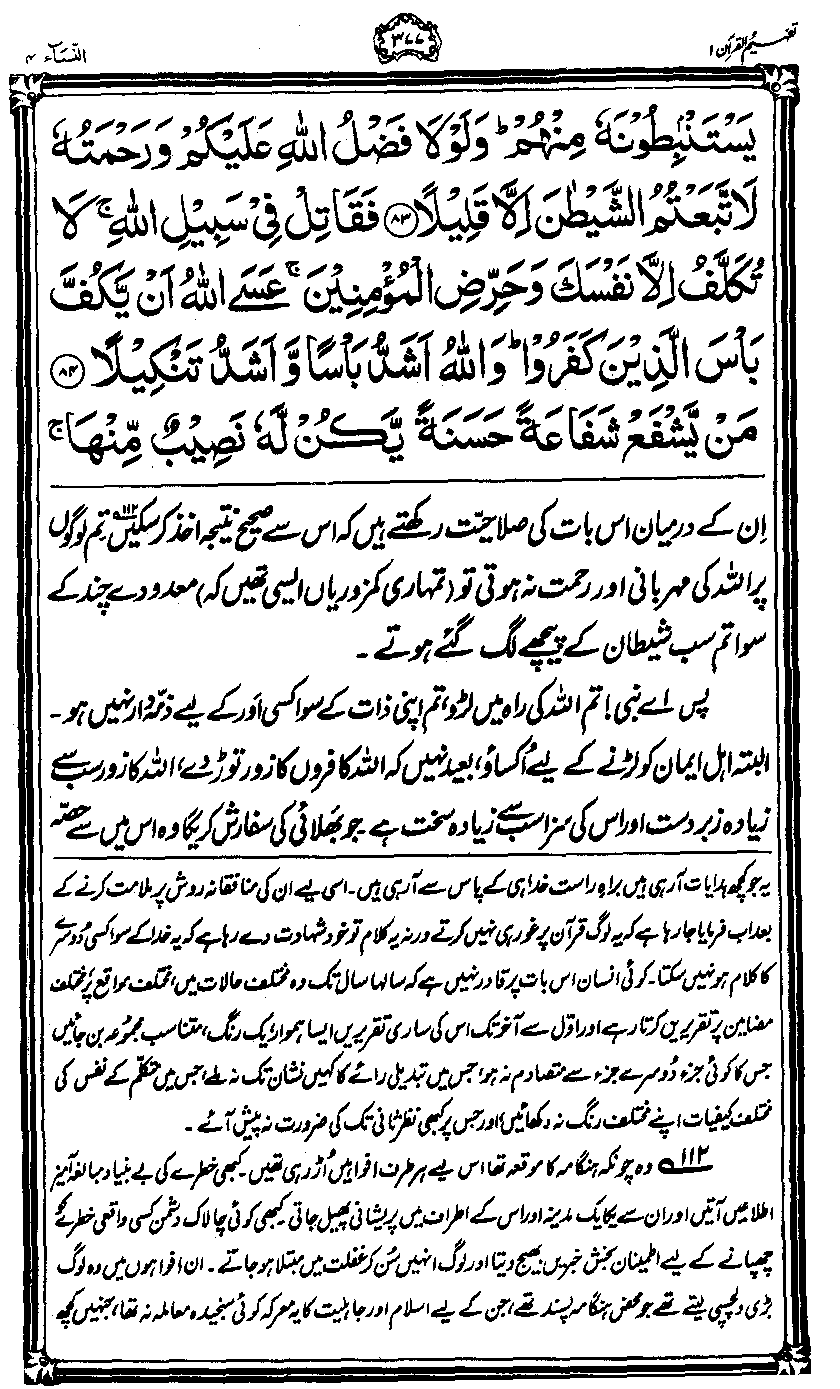 تفہیم القرآن ۱
۳۷۷
النسآء ۴
يَسْتَنْۢبِطُوْنَهٗ مِنْهُمْ ؕ وَلَوْلَا فَضْلُ اللّٰهِ عَلَيْكُمْ وَرَحْمَتُهٗ
لَاتَّبَعْتُمُ الشَّيْطٰنَ اِلَّا قَلِيْلًا ۸۳ فَقَاتِلْ فِيْ سَبِيْلِ اللّٰهِ ۚ لَا
تُكَلَّفُ اِلَّا نَفْسَكَ وَحَرِّضِ الْمُؤْمِنِيْنَ ۚ عَسَى اللّٰهُ اَنْ يَّكُفَّ
بَاْسَ الَّذِيْنَ كَفَرُوْا ؕ وَاللّٰهُ اَشَدُّ بَاْسًا وَّاَشَدُّ تَنْكِيْلًا ۸۴
مَنْ يَّشْفَعْ شَفَاعَةً حَسَنَةً يَّكُنْ لَّهٗ نَصِيْبٌ مِّنْهَا ۚ
اِن کے درمیان اس بات کی صلاحیّت رکھتے ہیں کہ اس سے صحیح نتیجہ اخذ کر سکیں۔۱۱۲ تم لوگوں
پر اللہ کی مہربانی اور رحمت نہ ہوتی تو (تمہاری کمزوریاں ایسی تھیں کہ) معدودے چند کے
سوا تم سب شیطان کے پیچھے لگ گئے ہوتے ۔
پس اے نبی! تم اللہ کی راہ میں لڑو، تم اپنی ذات کے سوا کسی اَور کے لیے ذمّہ دار نہیں ہو۔
البتہ اہل ایمان کو لڑنے کے لیے اُکساؤ، بعید نہیں کہ اللہ کافروں کا زور توڑ دے، اللہ کا زور سب سے
زیادہ زبردست اور اس کی سزا سب سے زیادہ سخت ہے۔ جو بھَلائی کی سفارش کریگا وہ اس میں سے حصّہ
یہ جو کچھ ہدایات آ رہی ہیں براہِ راست خدا ہی کے پاس سے آ رہی ہیں۔ اسی لیے ان کی منافقانہ روش پر ملامت کرنے کے
بعد اب فرمایا جا رہا ہے کہ یہ لوگ قرآن پر غور ہی نہیں کرتے ورنہ یہ کلام تو خود شہادت دے رہا ہے کہ یہ خدا کے سوا کسی دُوسرے
کا کلام ہو نہیں سکتا۔ کوئی انسان اس بات پر قادر نہیں ہے کہ سالہا سال تک وہ مختلف حالات میں، مختلف مواقع پر، مختلف
مضامین پر تقریریں کرتا رہے اور اوّل سے آخر تک اس کی ساری تقریریں ایسا ہموار، یک رنگ، متناسب مجموُعہ بن جائیں
جس کا کوئی جزء دُوسرے جزء سے متصادم نہ ہو، جس میں تبدیلی رائے کا کہیں نشان تک نہ ملے، جس میں متکلّم کے نفس کی
مختلف کیفیات اپنے مختلف رنگ نہ دکھائیں، اور جس پر کبھی نظر ثانی تک کی ضرورت نہ پیش آئے ۔
۱۱۲ وہ چونکہ ہنگامہ کا موقعہ تھا اس لیے ہر طرف افواہیں اُڑ رہی تھیں۔ کبھی خطرے کی بے بنیاد مبالغہ آمیز
اطلاعیں آتیں اور ان سے یکایک مدینہ اور اس کے اطراف میں پریشانی پھیل جاتی۔ کبھی کوئی چالاک دشمن کسی واقعی خطرے کو
چھپانے کے لیے اطمینان بخش خبریں بھیج دیتا اور لوگ انہیں سُن کر غفلت میں مبتلا ہو جاتے ۔ ان افواہوں میں وہ لوگ
بڑی دلچسپی لیتے تھے جو محض ہنگامہ پسند تھے، جن کے لیے اسلام اور جاہلیت کا یہ معرکہ کوئی سنجیدہ معاملہ نہ تھا، جنہیں کچھ